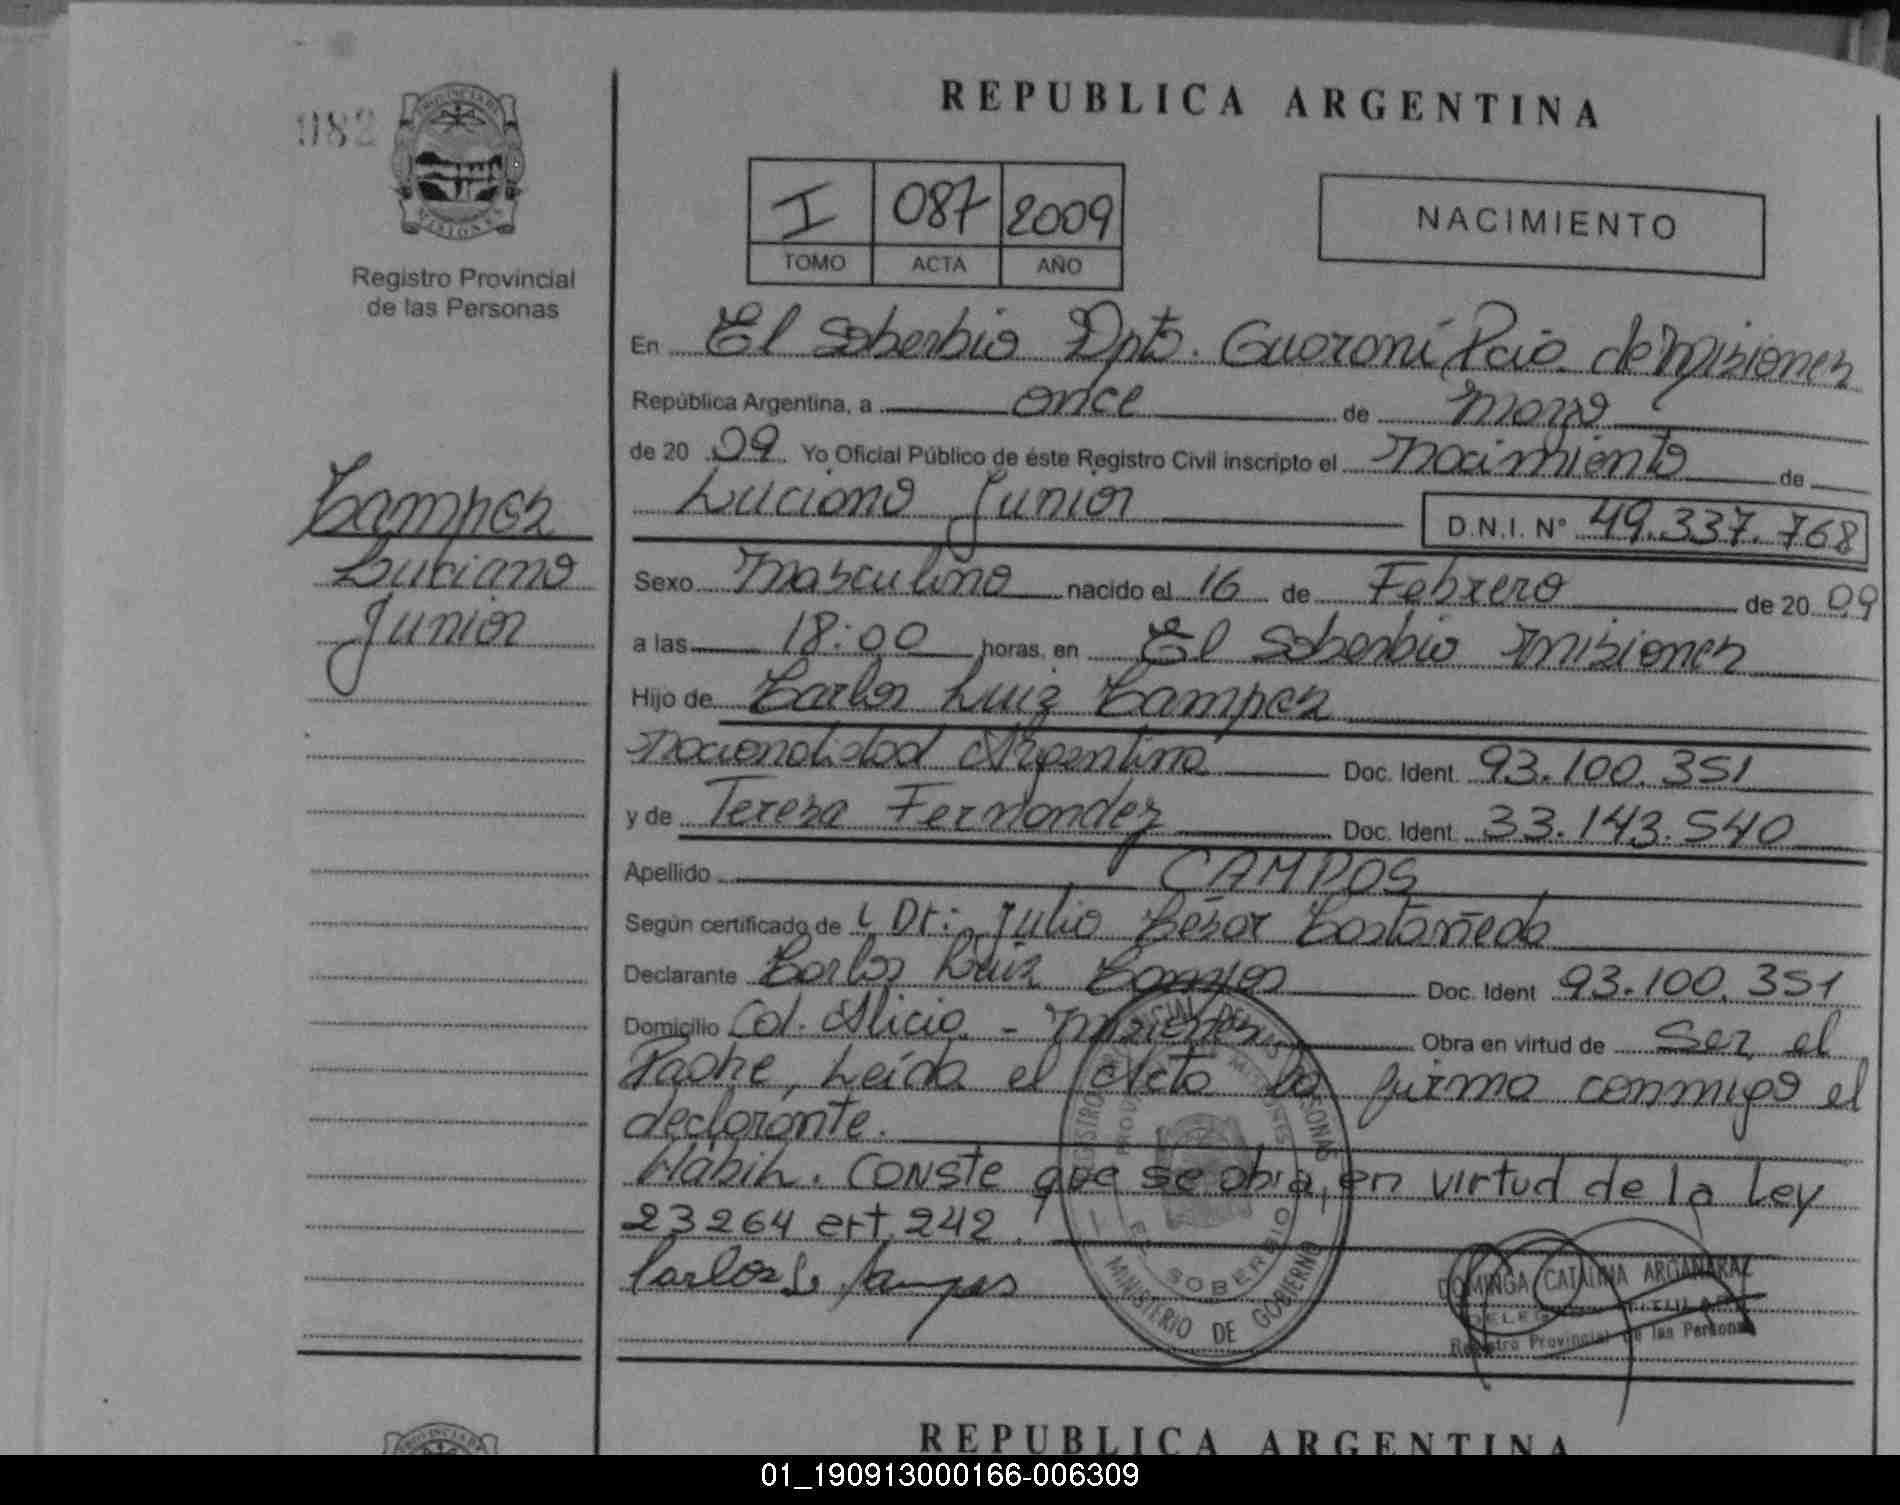 082
PROVINCIA DE
MISIONES
Registro Provincial
de las Personas
Campos
Luciano
Junior
REPUBLICA ARGENTINA
I 087 2009
TOMO ACTA AÑO
NACIMIENTO
En El Soberbio Dpto. Guaraní Pcia. de Misiones
República Argentina, a once de Marzo
de 2009 Yo Oficial Público de éste Registro Civil inscripto el Nacimiento de
Luciano Junior D.N.I. Nº 49.337.768
Sexo Masculino nacido el 16 de Febrero de 2009
a las 18:00 horas, en El Soberbio Misiones
Hijo de Carlos Luiz Campos
Nacionalidad Argentina Doc. Ident. 93.100.351
y de Tereza Fernandez Doc. Ident. 33.143.540
Apellido CAMPOS
Según certificado de Dr: Julio César Castañeda
Declarante Carlos Luiz Campos Doc. Ident 93.100.351
Domicilio Col. Alicia. - Misiones Obra en virtud de Ser el
Padre, Leída el Acta la firma conmigo el
declarante.
Hábil. CONSTE que se obra, en virtud de la Ley
23264 ert. 242.
Carlos L. Campos
MINISTERIO DE GOBIERNO
EL SOBERBIO
DOMINGA CATALINA ARGAÑARAZ
Registro Provincial de las Personas
PROVINCIA DE
REPUBLICA ARGENTINA
01_190913000166-006309